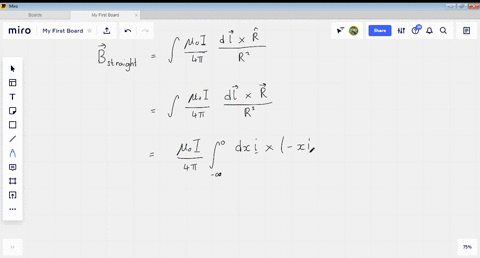 Miro
Boards
My First Board
miro
My First Board
Share
B⃗ straight = ∫ μ₀I/4π dl⃗ × R̂/R²
= ∫ μ₀I/4π dl⃗ × R⃗/R³
= μ₀I/4π ∫₋∞⁰ dx i × (-xi
75%